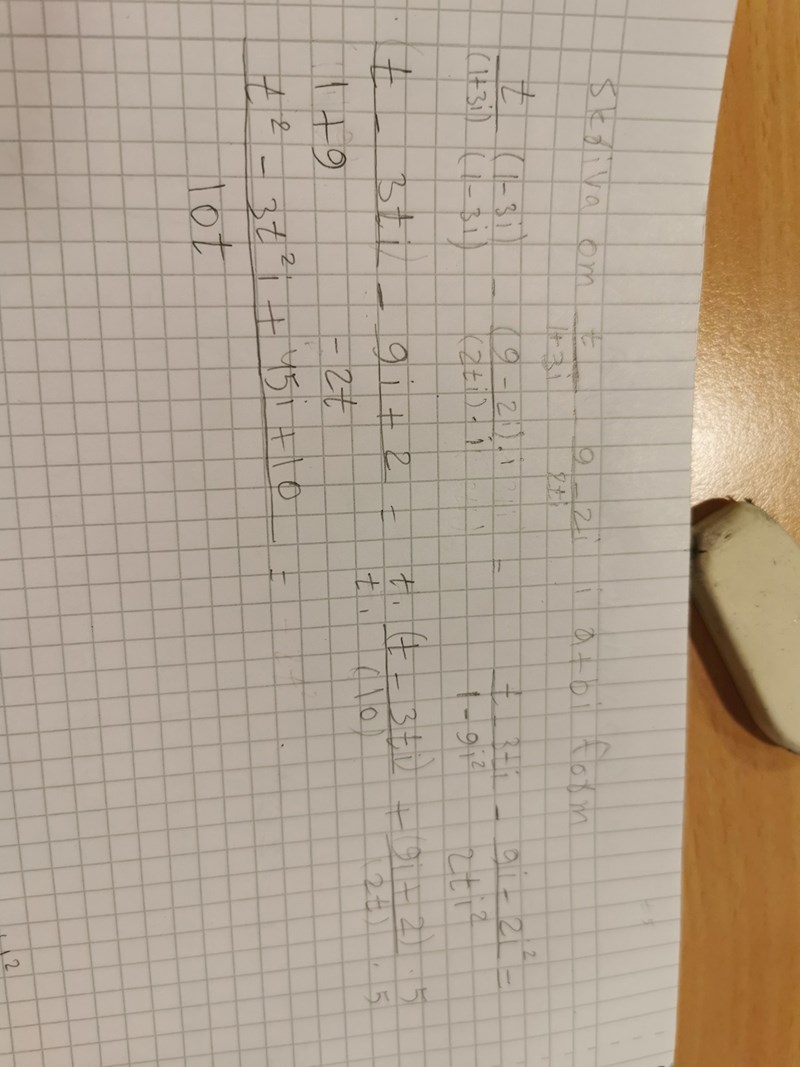 Skriva om t/(1+3i) - (9-2i)/(2ti) i a+bi form
t/(1+3i) (1-3i)/(1-3i) - (9-2i)·i/(2ti)·i = (t-3ti)/(1-9i²) - (9i-2i²)/(2ti²) =
(t-3ti)/(1+9) - (9i+2)/(-2t) = t·(t-3ti)/t·(10) + (9i+2)·5/(2t)·5
(t²-3t²i+45i+10)/(10t) =